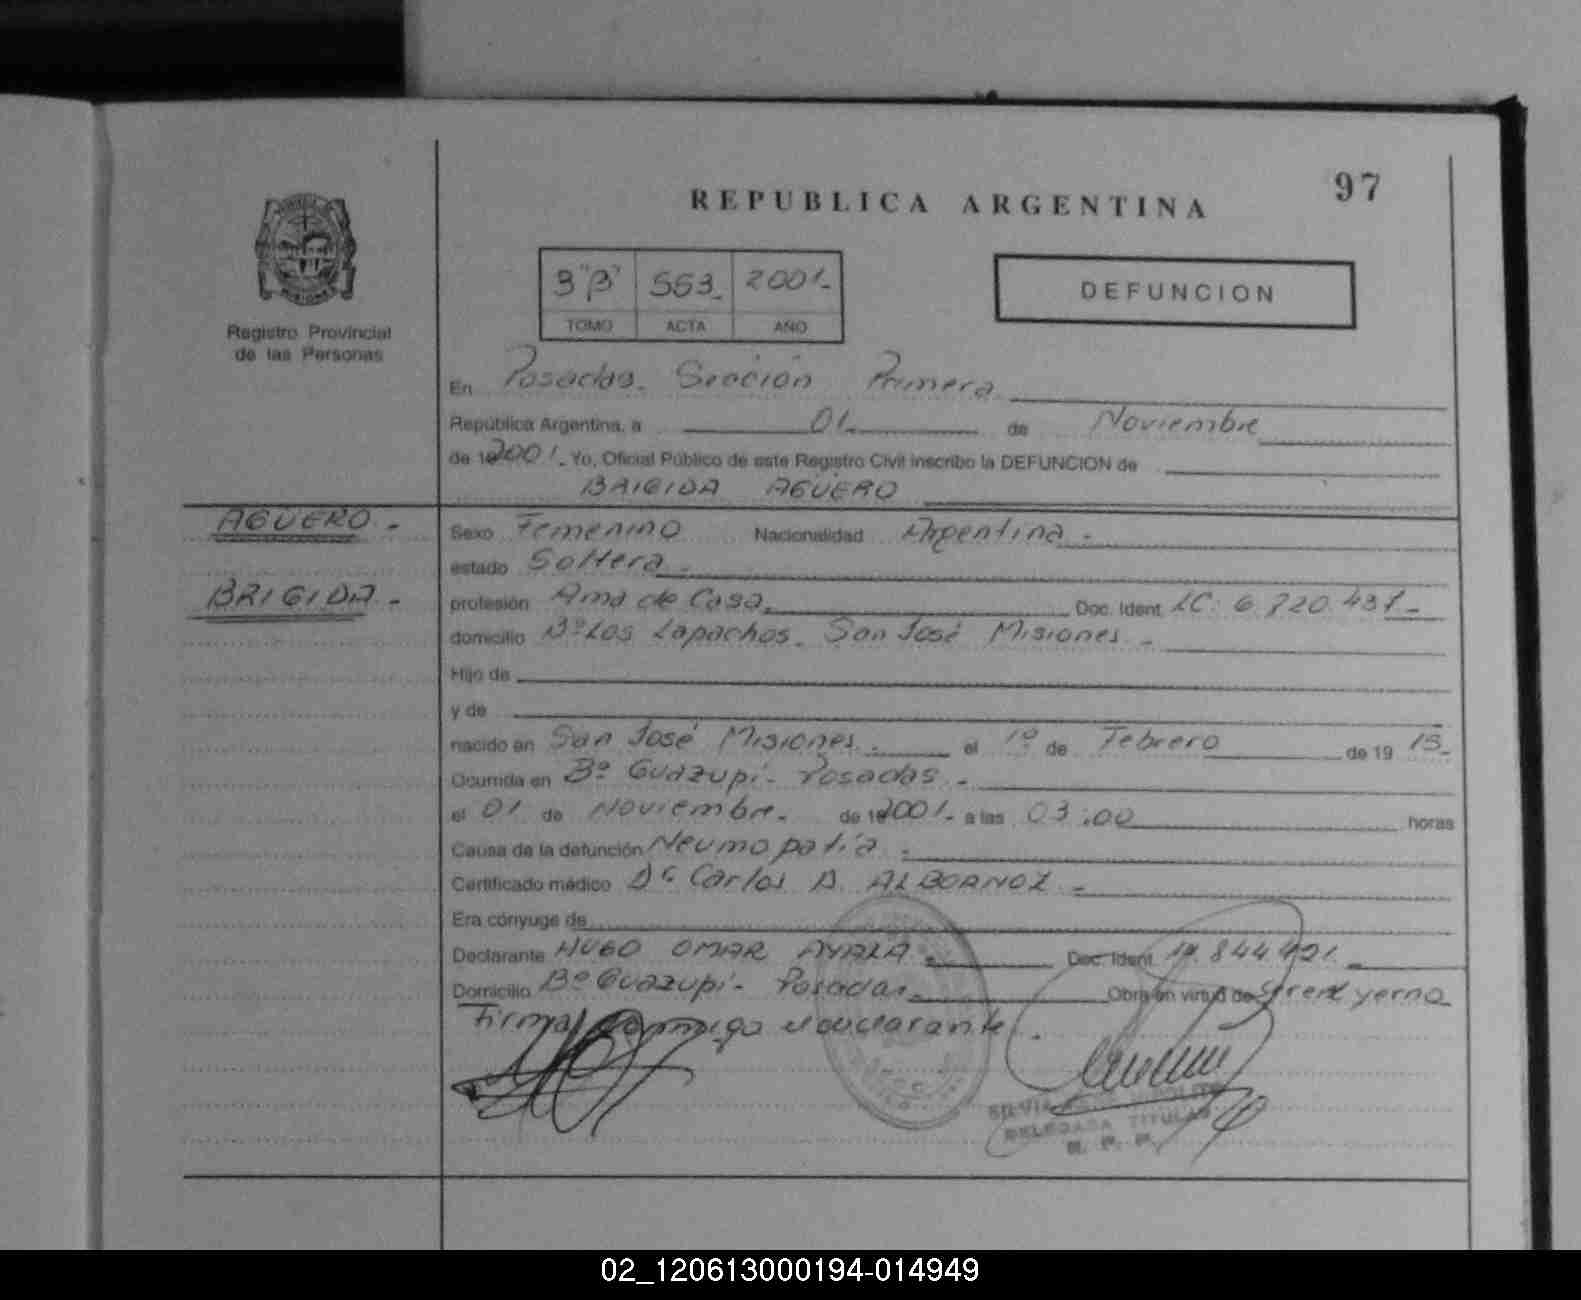 97
REPUBLICA ARGENTINA
Registro Provincial
de las Personas
3"B" 553- 2001-
TOMO ACTA AÑO
DEFUNCION
En Posadas. Sección Primera
República Argentina, a 01 de Noviembre
de 192001. Yo, Oficial Público de este Registro Civil inscribo la DEFUNCION de
BRIGIDA AGÜERO
AGUERO -
Sexo Femenino Nacionalidad Argentina -
estado Soltera -
BRIGIDA -
profesión Ama de Casa Doc. Ident. LC. 6.720.437-
domicilio Bº Los Lapachos. San José Misiones -
Hijo de
y de
nacido en San José Misiones. el 1º de Febrero de 19 15-
Ocurrida en Bº Guazupi - Posadas -
el 01 de Noviembre. de 192001- a las 03:00 horas
Causa de la defunción Neumopatía -
Certificado médico Dr Carlos A. ALBORNOZ -
Era cónyuge de
Declarante HUGO OMAR AYALA - Doc. Ident.
Domicilio Bº Guazupi - Posadas Obra en virtud de Ser el yerno
Firma conmigo el declarante -
SILVIA
DELEGADA TITULAR
R. P. P.
02_120613000194-014949